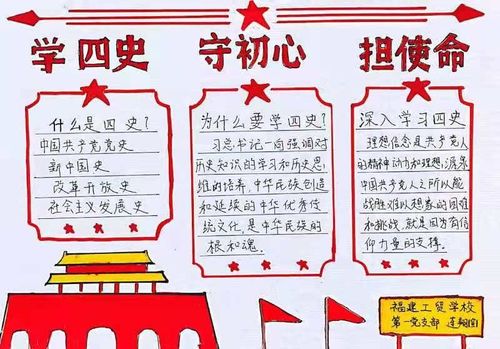 学四史 守初心 担使命
什么是四史?
中国共产党党史
新中国史
改革开放史
社会主义发展史
为什么要学四史?
习总书记一向强调对
历史知识的学习和历史思
维的培养,中华民族创造
和延续的中华优秀传
统文化,是中华民族的
根和魂。
深入学习四史
理想信念是共产党人
的精神动力和理想源泉
中国共产党人之所以能
战胜难以想象的困难
和挑战,就是因为有信
仰力量的支撑。
福建工贸学校
第一党支部